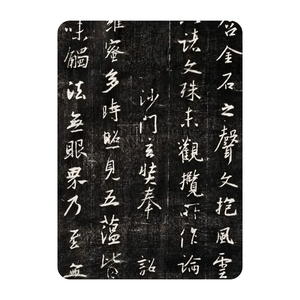 合金石之聲文抱風雲
諸文殊未觀攬所作論
沙門玄奘奉 詔
羅蜜多時照見五蘊皆
味觸法無眼界乃至無